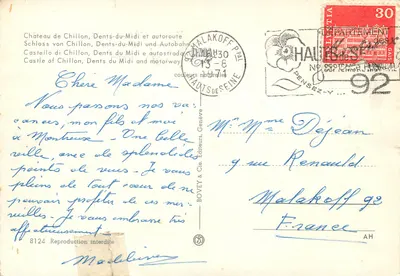 Château de Chillon, Dents-du-Midi et autoroute
Schloss von Chillon, Dents-du-Midi und Autobahn
Castello di Chillon, Dents du Midi e autostrada
Castle of Chillon, Dents du Midi and motorway
Chère Madame
Nous passons nos va-
cances, mon fils et moi
à Montreux. Une belle
ville, avec de splendides
points de vues. Je vous
plains de tout cœur de ne
pouvoir profiter de ces mer-
veilles. Je vous embrasse très
affectueusement
Madeleine
8124 Reproduction interdite
BOVEY & Cie, Editeurs, Genève
MALAKOFF Pal
13-6
1971
HAUTS-DE-SEINE
HELVETIA
30
DEPARTEMENT
HAUTS DE SEINE
PENSEZ-Y...
92
M. Mme Déjean
9 rue Renault
Malakoff 92
France
AH